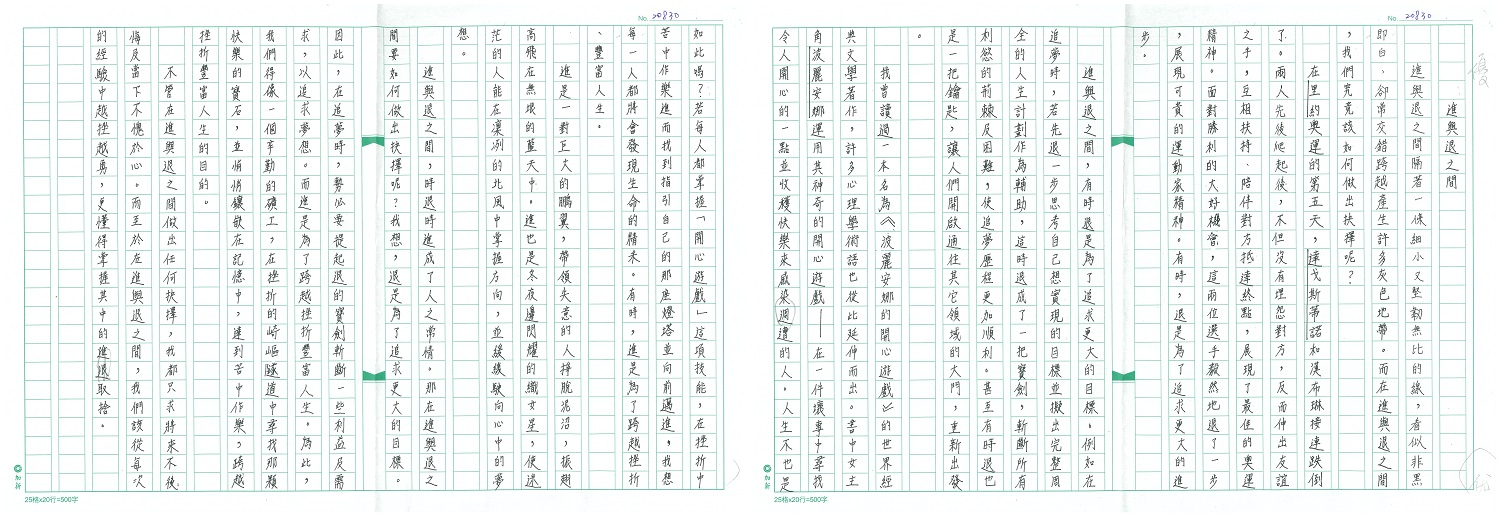 No. 20830
進與退之間
進與退之間隔著一條細小又堅韌無比的線，看似非黑
即白、卻常交錯跨越產生許多灰色地帶。而在進與退之間
，我們究竟該如何做出抉擇呢？
在里約奧運的第五天，達戈斯蒂諾和漢布琳接連跌倒
了。兩人先後爬起後，不但沒有埋怨對方，反而伸出友誼
之手，互相扶持、陪伴對方抵達終點，展現了最佳的奧運
精神。面對勝利的大好機會，這兩位選手毅然地退了一步
，展現可貴的運動家精神。有時，退是為了追求更大的進
步。
進與退之間，有時退是為了追求更大的目標。例如在
追夢時，若先退一步思考自己想實現的目標並擬出完整周
全的人生計劃作為輔助，這時退成了一把寶劍，斬斷所有
利慾的荊棘及困難，使追夢歷程更加順利。甚至有時退也
是一把鑰匙，讓人們開啟通往其它領域的大門，重新出發
。
我曾讀過一本名為《波麗安娜的開心遊戲》的世界經
典文學著作，許多心理學術語也從此延伸而出。書中女主
角波麗安娜運用其神奇的開心遊戲——在一件壞事中尋找
令人開心的一點並收穫快樂來感染週遭的人。人生不也是
25格x20行=500字
No. 20830
如此嗎？若每人都掌握「開心遊戲」這項技能，在挫折中
苦中作樂進而找到指引自己的那座燈塔並向前邁進，我想
每一人都將會發現生命的精采。有時，進是為了跨越挫折
、豐富人生。
進是一對巨大的鵬翼，帶領失意的人掙脫泥沼，振翅
高飛在無垠的藍天中。進也是冬夜邊閃耀的織女星，使迷
茫的人能在凜冽的北風中掌握方向，並緩緩駛向心中的夢
想。
進與退之間，時退時進成了人之常情。那在進與退之
間要如何做出抉擇呢？我想，退是為了追求更大的目標。
因此，在追夢時，勢必要提起退的寶劍斬斷一些利益及需
求，以追求夢想。而進是為了跨越挫折豐富人生。為此，
我們得像一個辛勤的礦工，在挫折的崎嶇隧道中尋找那顆
快樂的寶石，並悄悄鑲嵌在記憶中，達到苦中作樂，跨越
挫折豐富人生的目的。
不管在進與退之間做出任何抉擇，我都只求將來不後
悔及當下不愧於心。而至於在進與退之間，我們該從每次
的經驗中越挫越勇，更懂得掌握其中的進退取捨。
25格x20行=500字